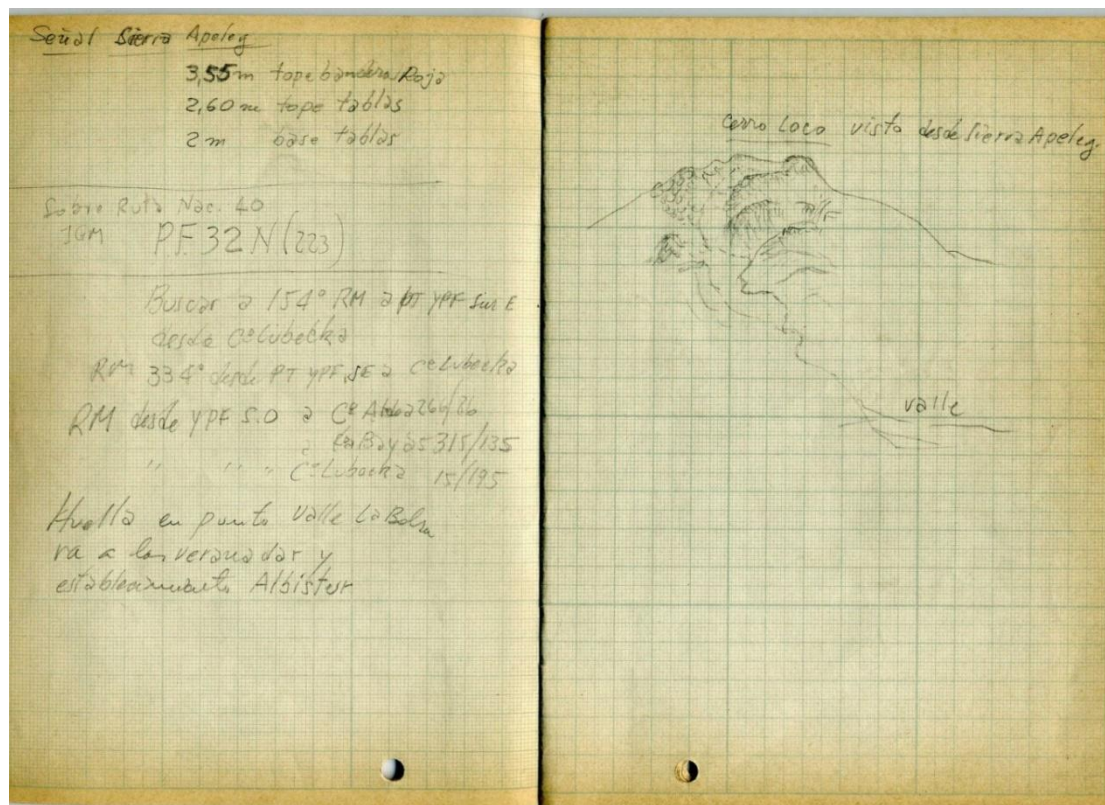 Señal Sierra Apeleg
3,55 m tope bandera Roja
2,60 m tope tablas
2 m base tablas
Sobre Ruta Nac. 40
IGM PF 32 N (223)
Buscar a 154° RM a PT YPF sur E
desde Cº Lubecka
RM 334° desde PT YPF SE a Cº Lubecka
RM desde YPF S.O a Cº
315/135
" " " Cº Lubecka 15/195
Huella en punto Valle La Bolsa
va a las veranadas y
establecimiento Albistur
cerro Loco vista desde Sierra Apeleg.
valle